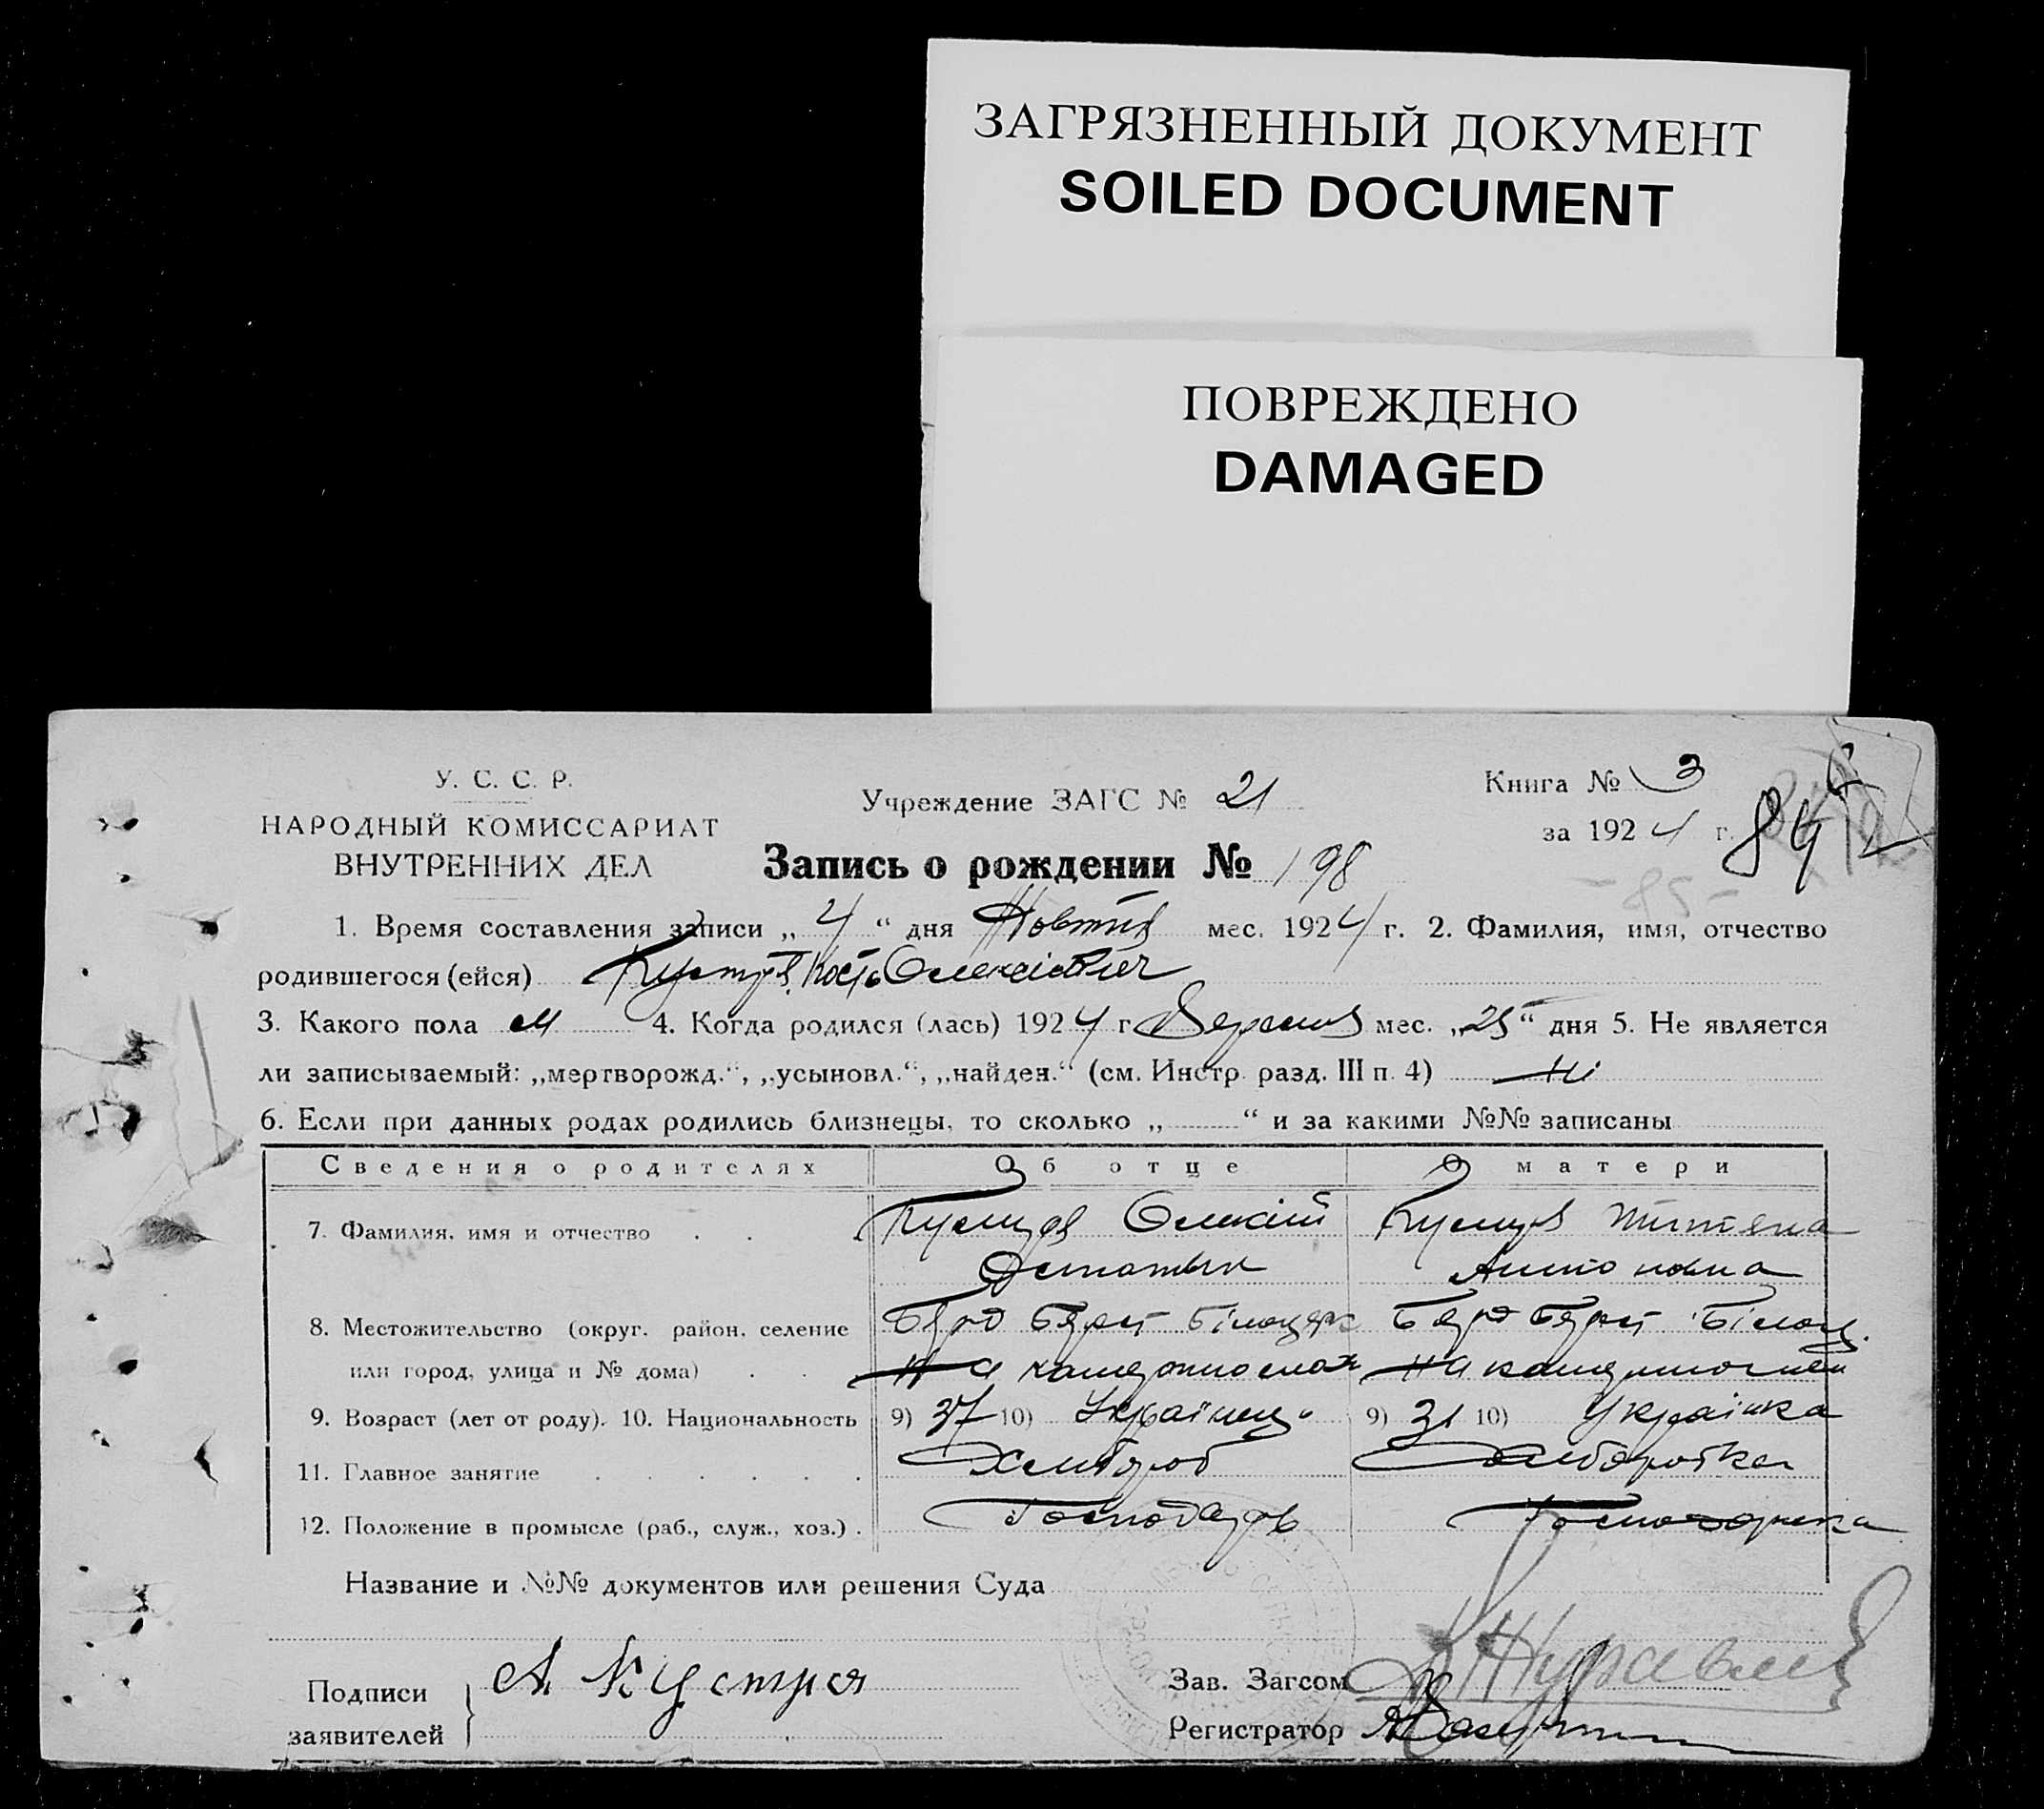 ЗАГРЯЗНЕННЫЙ ДОКУМЕНТ
SOILED DOCUMENT
ПОВРЕЖДЕНО
DAMAGED
У. С. С. Р.
НАРОДНЫЙ КОМИССАРИАТ
ВНУТРЕННИХ ДЕЛ
Учреждение ЗАГС № 21
Книга № 3
за 1924 г.
Запись о рождении № 198
-85-
1. Время составления записи „4“ дня Жовтня мес. 1924 г. 2. Фамилия, имя, отчество
родившегося (ейся) Кость Олексієвич
3. Какого пола м 4. Когда родился (лась) 1924 г Вересня мес. „25“ дня 5. Не является
ли записываемый: „мертворожд.“, „усыновл.“, „найден.“ (см. Инстр. разд. III п. 4) ні
6. Если при данных родах родились близнецы, то сколько „ “ и за какими №№ записаны
Сведения о родителях Об отце О матери
7. Фамилия, имя и отчество Олексій Антоновна
8. Местожительство (округ. район. селение
или город, улица и № дома) на на
9. Возраст (лет от роду). 10. Национальность 9) 37 10) Українець 9) 31 10) Українка
11. Главное занятие Хлибороб Хлиборобка
12. Положение в промысле (раб., служ., хоз.) Господарь Господарька
Название и №№ документов или решения Суда
Подписи
заявителей А. Кустря
Зав. Загсом Журавль
Регистратор